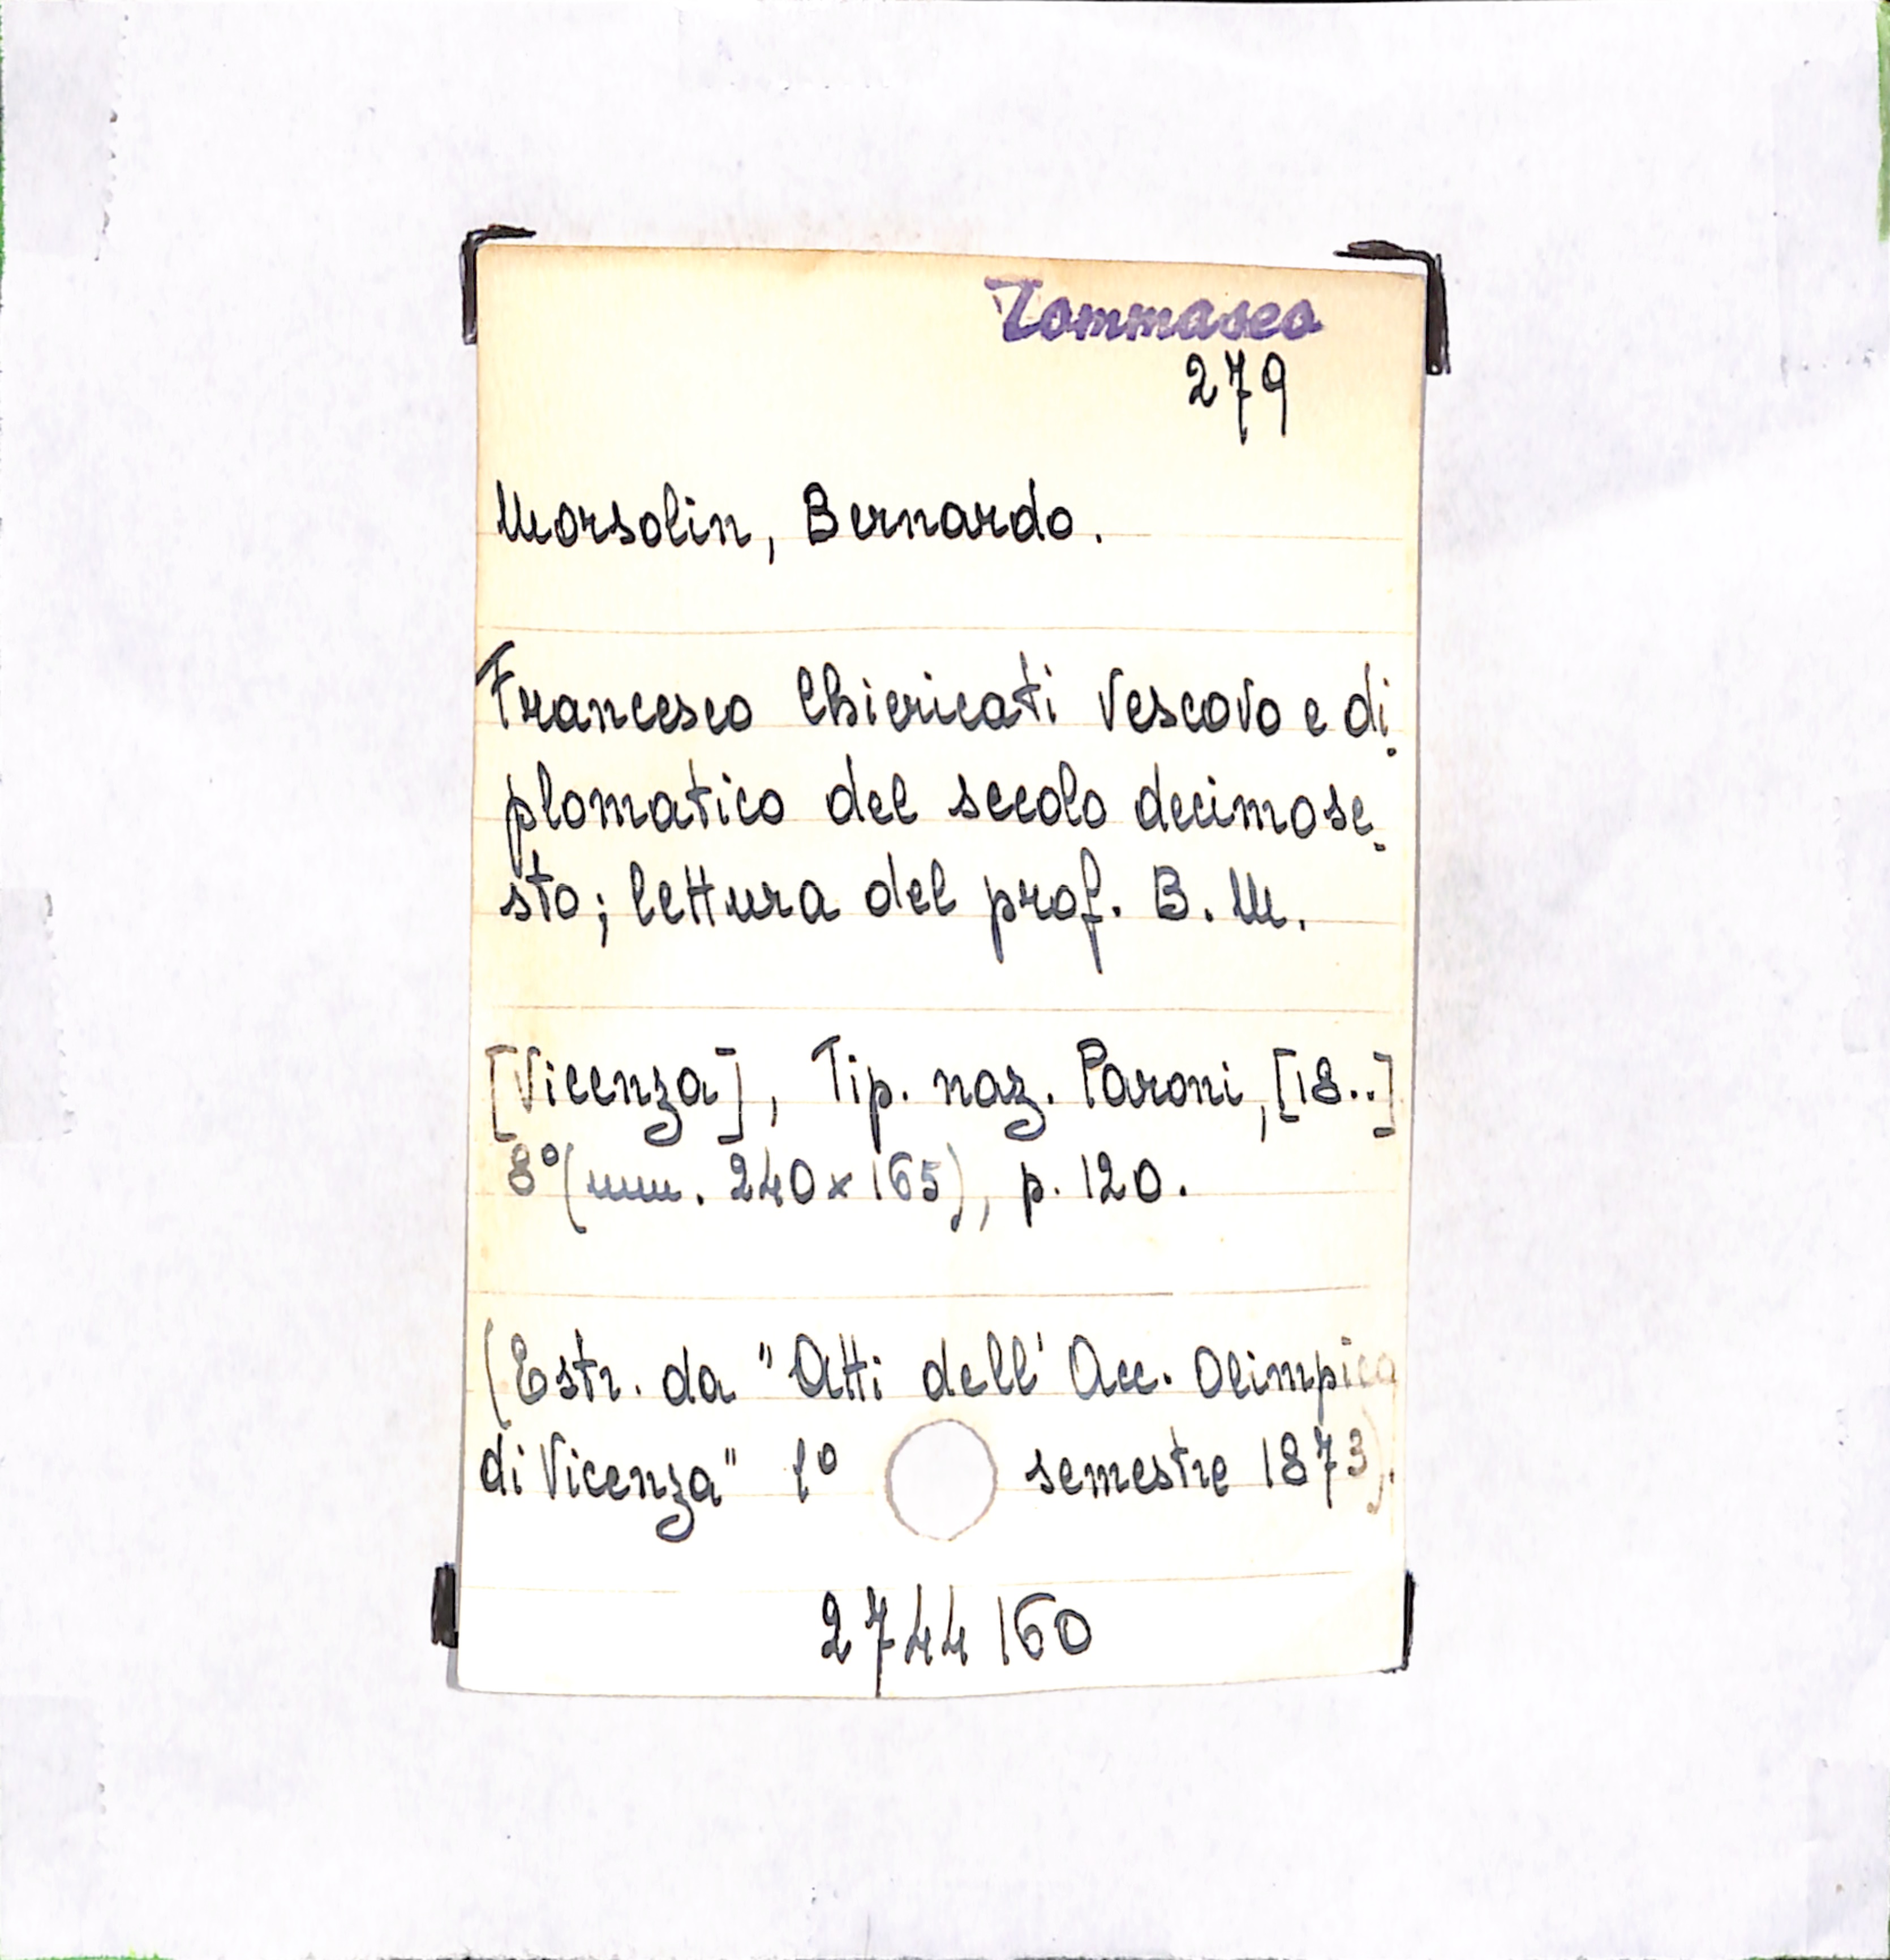 Tommaseo
279
Morsolin, Bernardo.
Francesco Chiericati Vescovo e di-
plomatico del secolo decimose-
sto; lettura del prof. B. M.
[Vicenza], Tip. naz. Paroni, [18..]
8°(mm. 240x165), p. 120.
(Estr. da "Atti dell' Acc. Olimpica
di Vicenza" 1° semestre 1873).
2744160